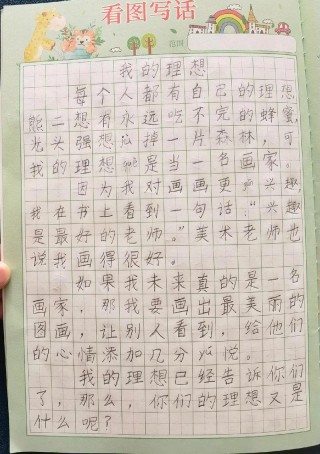 看图写话
班级
我的理想
每个人都有自己的理想
熊二想有永远吃不完的蜂蜜,
光头强想 掉一片森林,可
我的理想 是当一名画家。
因为我对画画更 兴趣,
我在书上看到一句话:“兴趣
是最好的老师。”美术老师也
说我画得很好。
如果我未来真的是一名
画家,那我要画出最美丽的
图画,让别人看到,给他们
的心情添加几分 悦。
我的理想已经告诉你们
了,那么,你们的理想又是
什么呢?